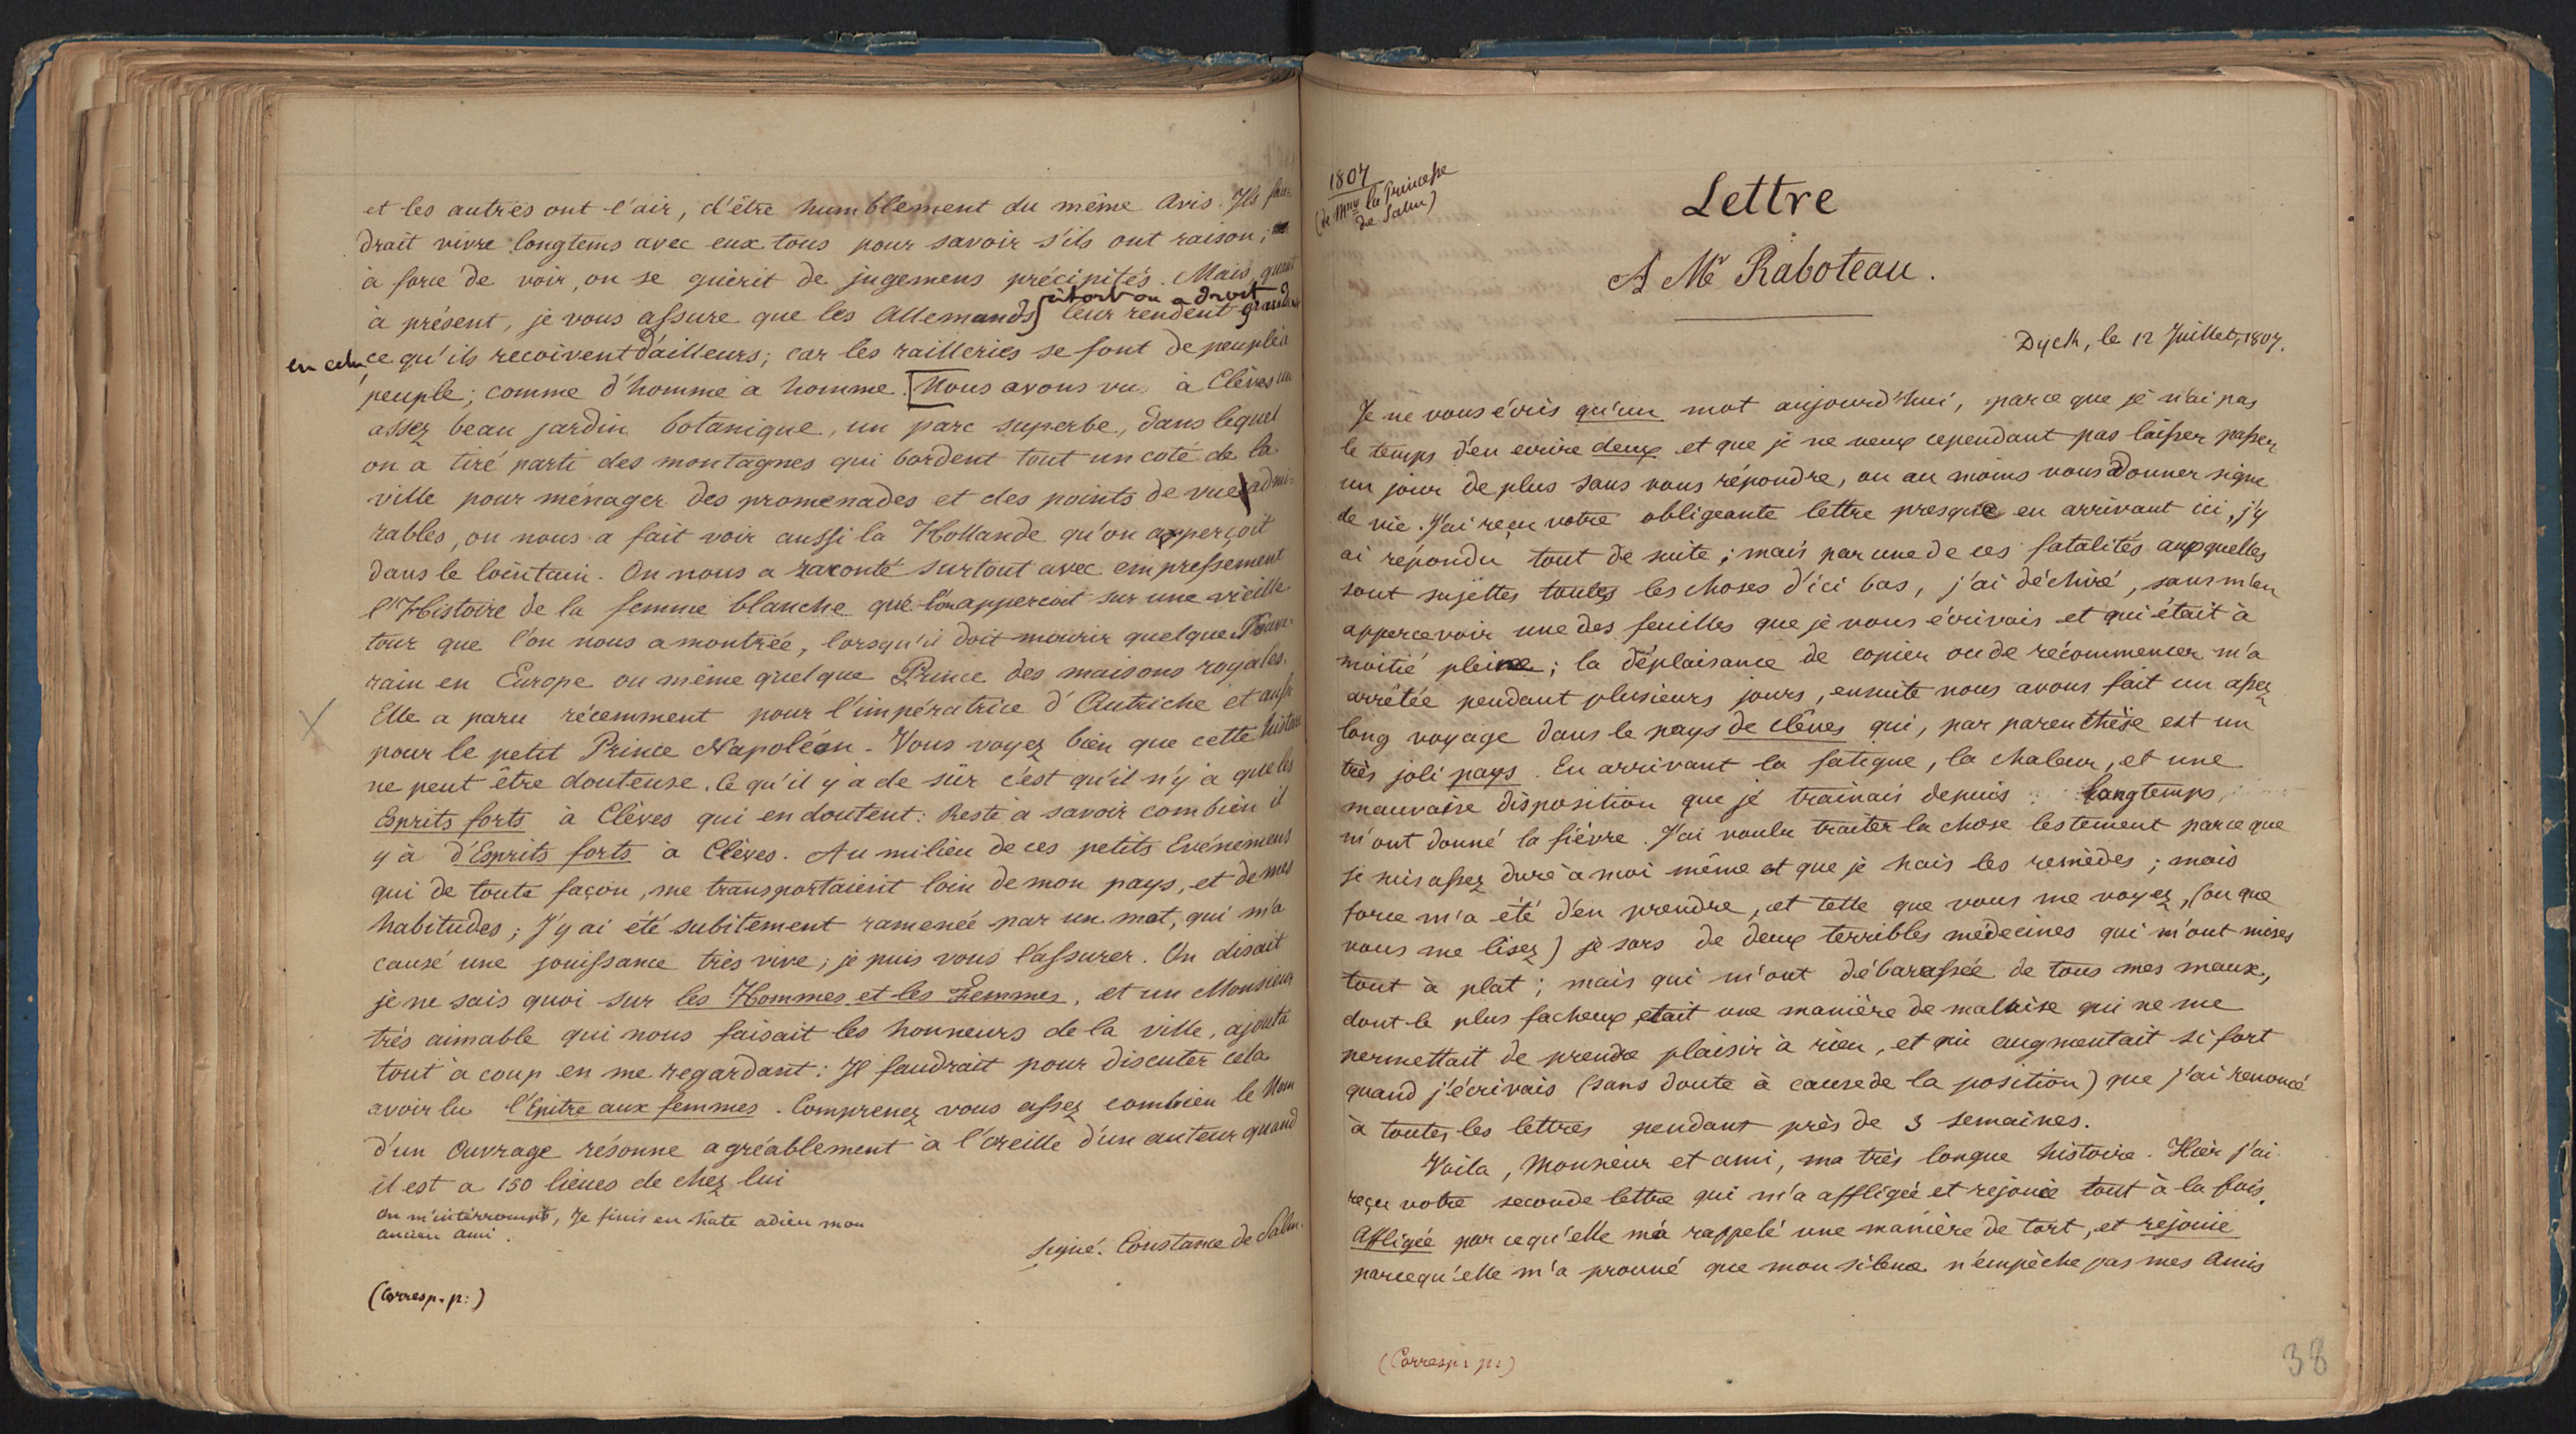 et les autres ont l'air, d'être humblement du même avis. Ils fau-
drait vivre longtems avec eux tous pour savoir s'ils ont raison;
à force de voir, on se guérit de jugemens précipités. Mais, quant
à tort ou a droit
à présent, je vous assure que les Allemands leur rendent
en cela ce qu'ils recoivent d'ailleurs; car les railleries se font de peuple à
peuple; comme d'homme a homme. [Nous avons vu à Clèves un
assez beau jardin botanique, un parc superbe, dans lequel
on a tiré parti des montagnes qui bordent tout un coté de la
ville pour ménager des promenades et des points de vue admi-
rables, on nous a fait voir aussi la Hollande qu'on apperçoit
dans le lointain. On nous a raconté surtout avec empressement
l'Histoire de la femme blanche que l'on appercoit sur une vieille
tour que l'on nous a montrée, lorsqu'il doit mourir quelque Souve-
rain en Europe ou même quelque Prince des maisons royales.
Elle a paru récemment pour l'impératrice d'Autriche et aussi
pour le petit Prince Napoléon. Vous voyez bien que cette histoire
ne peut être douteuse. Ce qu'il y a de sûr c'est qu'il n'y a que les
Esprits forts à Clèves qui en doutent: Reste à savoir combien il
y à d'Esprits forts à Clèves. Au milieu de ces petits Evénemens
qui de toute façon, me transportaient loin de mon pays, et de mes
habitudes; J'y ai été subitement ramenée par un mot, qui m'a
causé une jouissance très vive; je puis vous l'assurer. On disait
je ne sais quoi sur les Hommes et les Femmes, et un Monsieur
très aimable qui nous faisait les honneurs de la ville, ajouta
tout à coup en me regardant: Il faudrait pour discuter cela
avoir lu l'Epitre aux femmes. Comprenez vous assez combien le Nom
d'un Ouvrage résonne agréablement à l'oreille d'un auteur quand
il est a 150 lieues de chez lui
On m'interrompt, Je finis en hate adieu mon
ancien ami.
Signé. Constance de Salm.
(Corresp. p:)
1807
(de Mme la Princesse
de Salm)
Lettre
A Mr Raboteau.
Dyck, le 12 Juillet, 1807.
Je ne vous écris qu'un mot aujourd'hui, parce que je n'ai pas
le temps d'en ecrire deux et que je ne veux cependant pas laisser passer
un jour de plus sans vous répondre, ou au moins vous donner signe
de vie. J'ai reçu votre obligeante lettre presque en arrivant ici, j'y
ai répondu tout de suite; mais par une de ces fatalités auxquelles
sont sujettes toutes les choses d'ici bas, j'ai déchiré, sans m'en
appercevoir une des feuilles que je vous écrivais et qui était à
moitié pleine; la déplaisance de copier ou de récommencer m'a
arrêtée pendant plusieurs jours, ensuite nous avons fait un assez
long voyage dans le pays de Clèves qui, par parenthèse est un
très joli pays. En arrivant la fatigue, la chaleur, et une
mauvaise disposition que je trainais depuis longtemps,
m'ont donné la fièvre. J'ai voulu traiter la chose lestement parce que
je suis assez dure à moi même et que je hais les remèdes; mais
force m'a été d'en prendre, et telle que vous me voyez, (ou que
vous me lisez) je sors de deux terribles médecines qui m'ont mises
tout à plat; mais qui m'ont débarassée de tous mes maux,
dont le plus facheux etait une manière de malaise qui ne me
permettait de prendre plaisir à rien, et qui augmentait si fort
quand j'écrivais (sans doute à cause de la position) que j'ai renoncé
à toutes les lettres pendant près de 3 semaines.
Voila, Monsieur et ami, ma très longue histoire. Hier j'ai
reçu votre seconde lettre qui m'a affligée et rejouie tout à la fois.
Affligée par ce qu'elle m'a rappelé une manière de tort, et rejouie
parcequ'elle m'a prouvé que mon silence n'empêche pas mes Amis
(Corresp: p:)
38